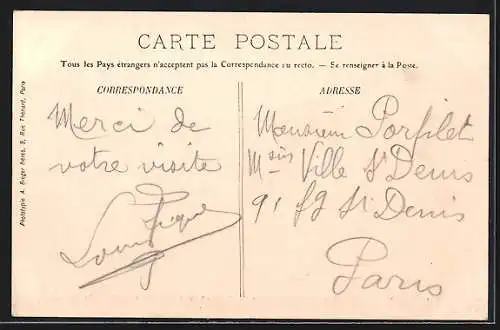 CARTE POSTALE
Tous les Pays étrangers n'acceptent pas la Correspondance au recto. — Se renseigner à la Poste.
CORRESPONDANCE
Merci de
votre visite
Louis
ADRESSE
Monsieur Porfilet
Mson Ville St Denis
91 fg St Denis
Paris
Phototypie A. Breger Frères, 9, Rue Thénard, Paris